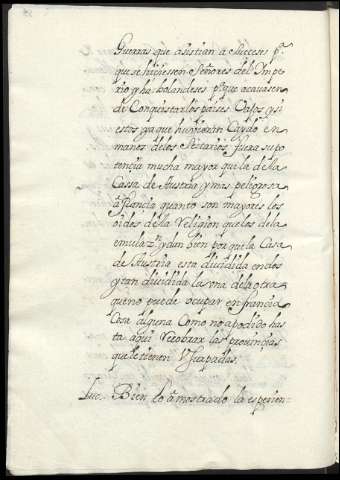 Guerras que asistian a Sueceses p.ª
que se hiciessen Señores del Impe
rio y ha holandeses p.ª que acavasen
de Conquistar los paises Vajos y si
estos ya que huvieran Caydo en
manos de los Sectarios fuera su po
tençia mucha mayor que la de la
Cassa de Austria, y mas peligrosa
a françia quanto son mayores los
odios de la Religion que los de la
emulaz.n y tan bien por que la Casa
de Austria esta diuidida en dos
y tan diuidida la vna de la otra
que no puede ocupar en françia
Cosa alguna Como no a podido has
ta aqui Recobrar las prouinçias
que le tienen Vsurpadas.
Luc. Bien lo a mostrado la esperien-